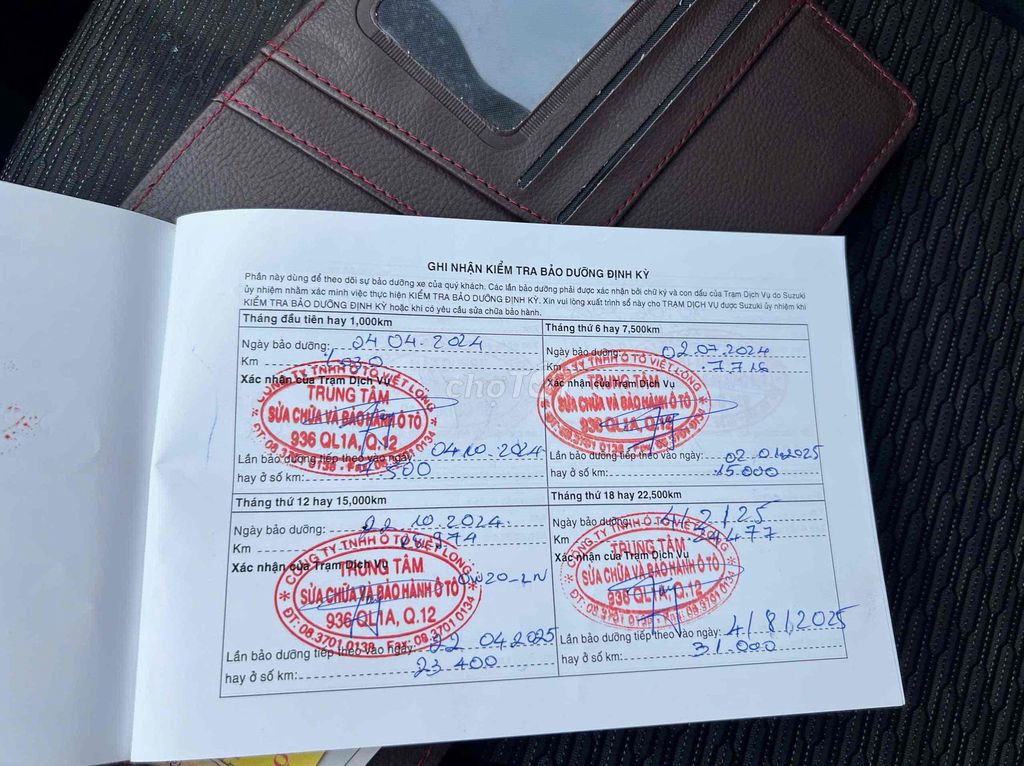 GHI NHẬN KIỂM TRA BẢO DƯỠNG ĐỊNH KỲ
Phần này dùng để theo dõi sự bảo dưỡng xe của quý khách. Các lần bảo dưỡng phải được xác nhận bởi chữ ký và con dấu của Trạm Dịch Vụ do Suzuki
ủy nhiệm nhằm xác minh việc thực hiện KIỂM TRA BẢO DƯỠNG ĐỊNH KỲ. Xin vui lòng xuất trình sổ này cho TRẠM DỊCH VỤ được Suzuki ủy nhiệm khi
KIỂM TRA BẢO DƯỠNG ĐỊNH KỲ hoặc khi có yêu cầu sửa chữa bảo hành.
Tháng đầu tiên hay 1,000km
Ngày bảo dưỡng: 24 04. 2024
Km 1030
Xác nhận của Trạm Dịch Vụ
CÔNG TY TNHH Ô TÔ VIỆT LONG
TRUNG TÂM
SỬA CHỮA VÀ BẢO HÀNH Ô TÔ
936 QL1A, Q.12
ĐT: 08.3701 0138 - Fax: 08.3701 0134
Lần bảo dưỡng tiếp theo vào ngày: 04 10. 2024
hay ở số km: 7 500
Tháng thứ 6 hay 7,500km
Ngày bảo dưỡng: 02.07.2024
Km 7.716
Xác nhận của Trạm Dịch Vụ
CÔNG TY TNHH Ô TÔ VIỆT LONG
TRUNG TÂM
SỬA CHỮA VÀ BẢO HÀNH Ô TÔ
936 QL1A, Q.12
ĐT: 08.3701 0138 - Fax: 08.3701 0134
Lần bảo dưỡng tiếp theo vào ngày: 02.01.2025
hay ở số km: 15.000
Tháng thứ 12 hay 15,000km
Ngày bảo dưỡng: 22 10.2024
Km
Xác nhận của Trạm Dịch Vụ
CÔNG TY TNHH Ô TÔ VIỆT LONG
TRUNG TÂM
SỬA CHỮA VÀ BẢO HÀNH Ô TÔ
0W20-LN
936 QL1A, Q.12
ĐT: 08.3701 0138 Fax: 08.3701 0134
Lần bảo dưỡng tiếp theo vào ngày: 22 04.2025
hay ở số km: 23 400
Tháng thứ 18 hay 22,500km
Ngày bảo dưỡng: 4/2/25
Km 24477
Xác nhận của Trạm Dịch Vụ
CÔNG TY TNHH Ô TÔ VIỆT LONG
TRUNG TÂM
SỬA CHỮA VÀ BẢO HÀNH Ô TÔ
936 QL1A, Q.12
ĐT: 08.3701 0138 - Fax: 08.3701 0134
Lần bảo dưỡng tiếp theo vào ngày: 4/8/2025
hay ở số km: 31.000